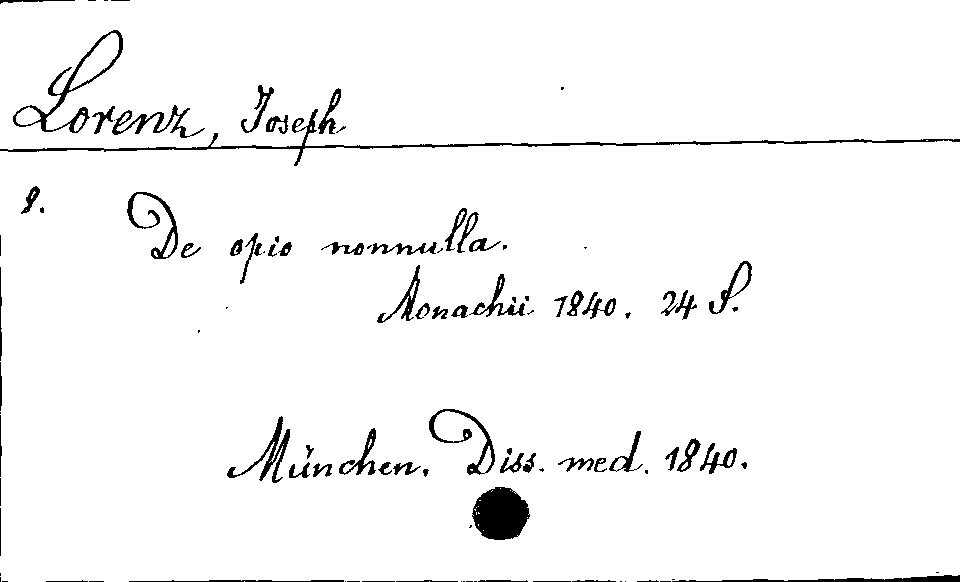 Lorenz, Joseph
8.
De opio nonnulla.
Monachii 1840. 24 S.
München. Diss. med. 1840.